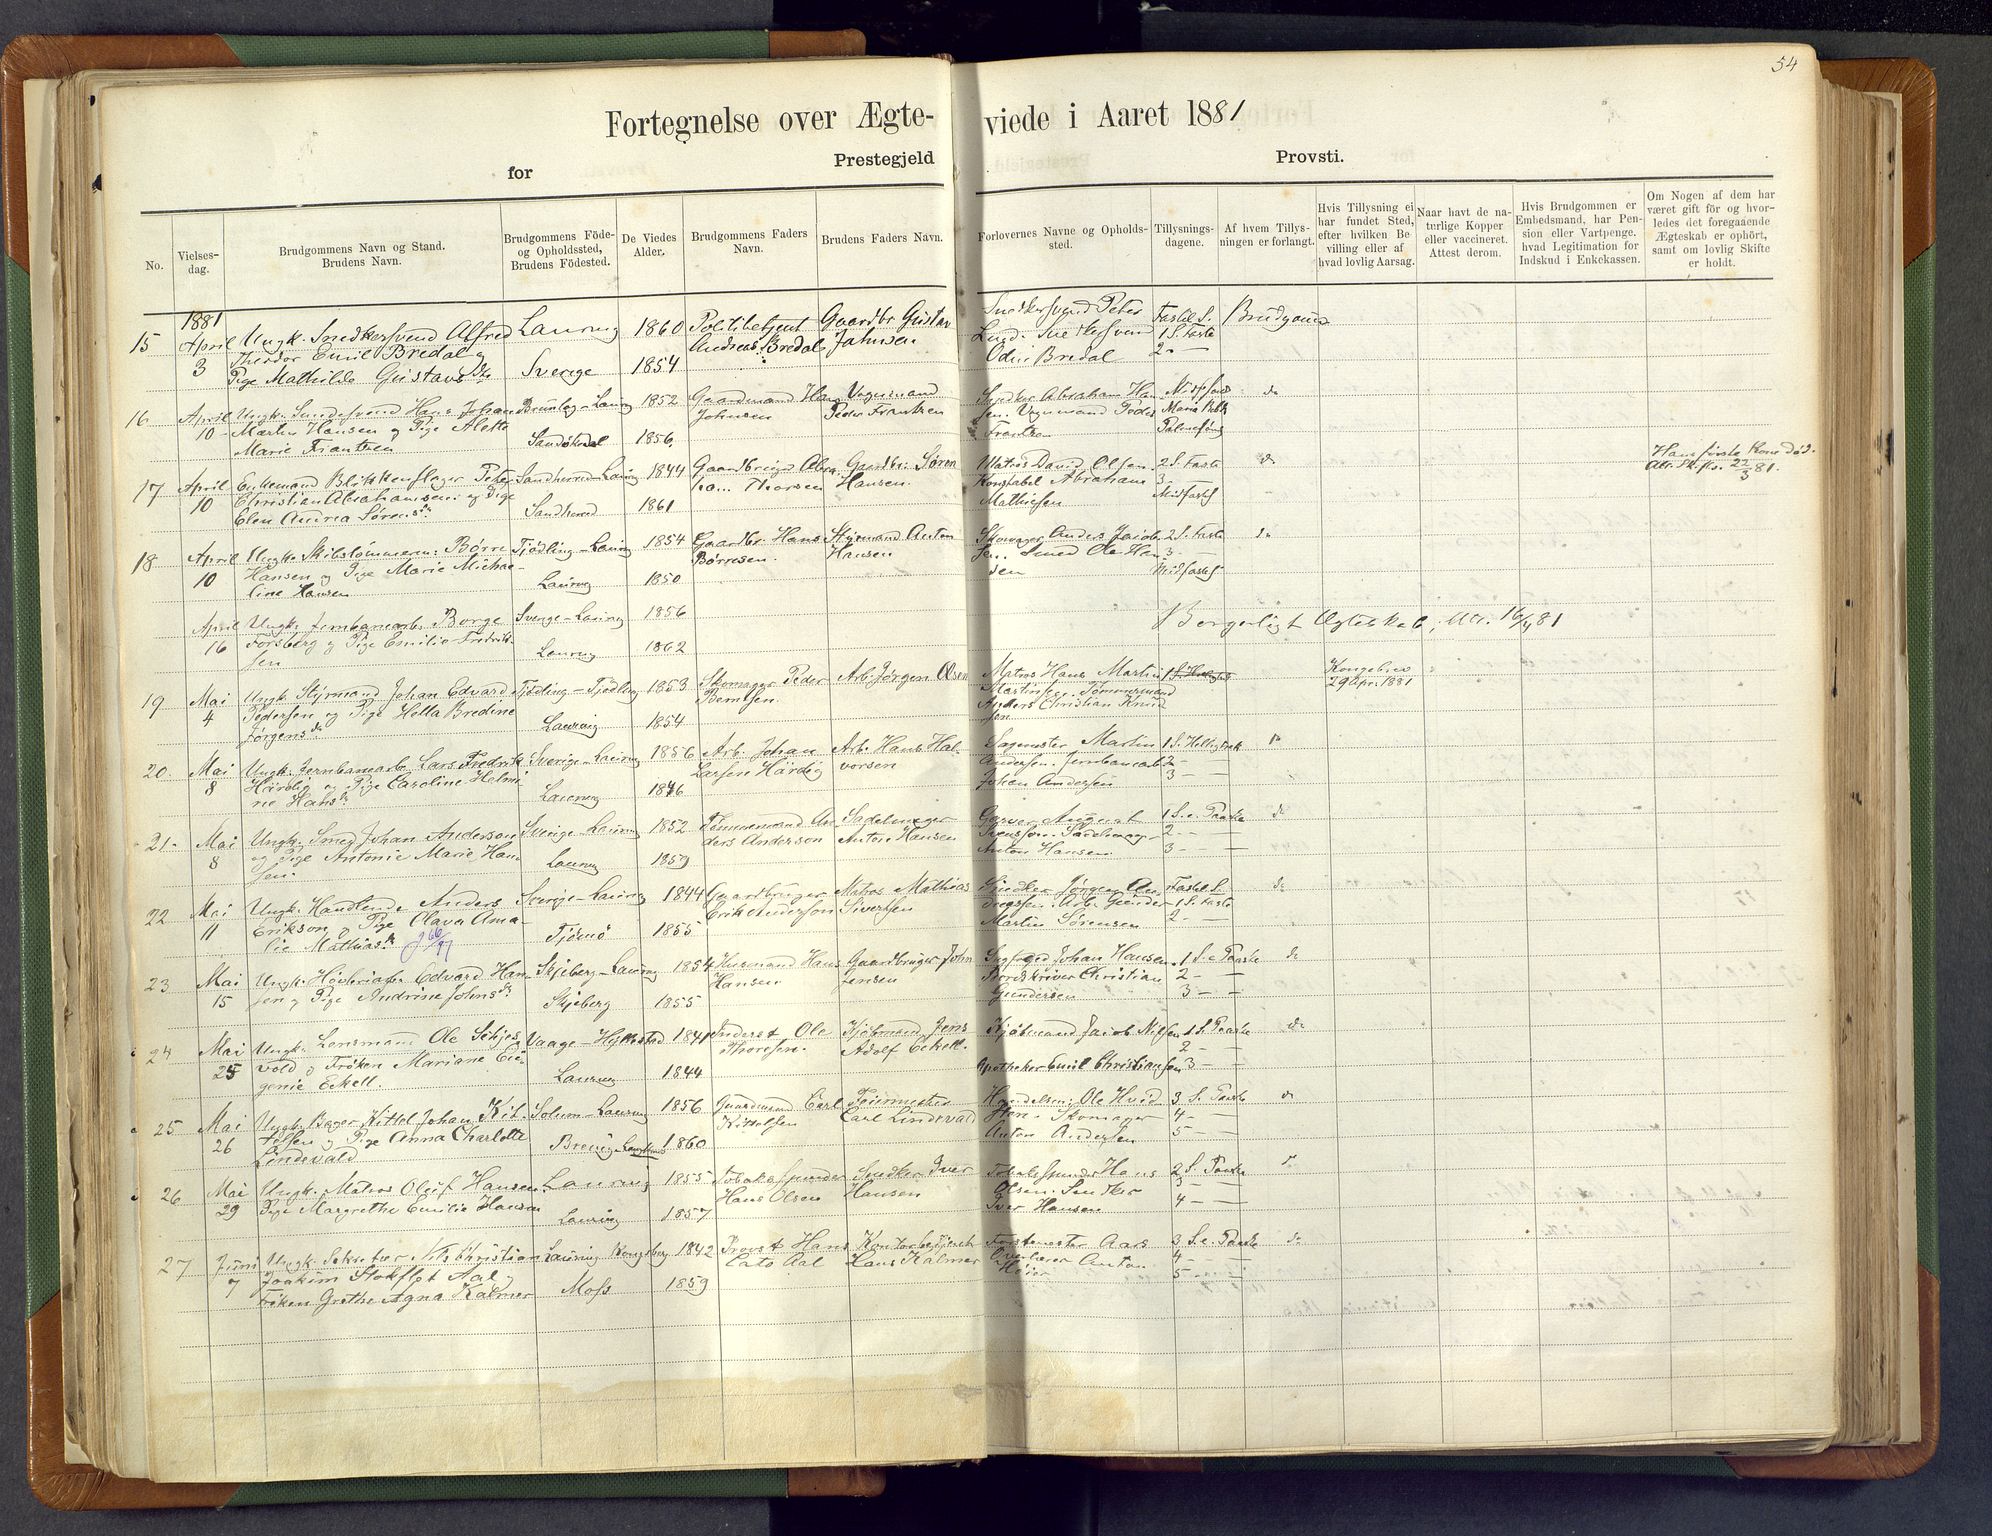 54
Fortegnelse over Ægte- viede i Aaret 1881
for Prestegjeld Provsti.
No.
Vielses-
dag.
Brudgommens Navn og Stand.
Brudens Navn.
Brudgommens Føde-
og Opholdssted,
Brudens Fødested.
De Viedes
Alder.
Brudgommens Faders
Navn.
Brudens Faders Navn.
Forlovernes Navne og Opholds-
sted.
Tillysnings-
dagene.
Af hvem Tillys-
ningen er forlangt.
Hvis Tillysning ei
har fundet Sted,
efter hvilken Be-
villing eller af
hvad lovlig Aarsag.
Naar havt de na-
turlige Kopper
eller vaccineret.
Attest derom.
Hvis Brudgommen er
Embedsmand, har Pen-
sion eller Vartpenge.
hvad Legitimation for
Indskud i Enkekassen.
Om Nogen af dem har
været gift før og hvor-
ledes det foregaaende
Ægteskab er ophørt,
samt om lovlig Skifte
er holdt.
1881
15 April 3 Ungk. Snedkersvend Alfred Laurvig 1860 Politibetjent Gaardbr Gustav Snedkersvend Peter Fastel. S. Brudgom
Theodor Emil Bredal og Andreas Bredal Johnsen Lund. Snedkersvend 1 S. Faste
Pige Mathilde Gustavs Sverige 1854 Odin Bredal 2 —
16 April 10 Ungk. Hans Johan Brunlag-Laurvig 1852 Gaardmand Hans Vognmand Snedker Abraham Han Midfaste do
Martin Hansen og Pige Alette Johnsen Peder Frantzen sen. Vognmand Peder Maria Beb
Marie Frantzen Sandøkedal 1856 Frantzen Palmesøng
17 April 10 Enkemand Blikkenslager Peter Sandherred-Laurvig 1844 Gaardbruger Abra Gaardbr. Søren Matros David Olsen 2 S. Faste do Hans første Kone død.
Christian Abrahamsen og Pige ham Thorsen Hansen Konstabel Abraham 3 — 22/3 81.
Elen Andrea Sørens Sandherred 1861 Mathiesen Midfaste
18 April 10 Ungk. Skibstømmerm. Børre Tjødling-Laurvig 1854 Gaardbr. Hans Styrmand Anton Skomager Anders Jacob 2 S. Faste do
Hansen og Pige Marie Micha- Børresen Hansen sen. Smed Ole Han 3 —
line Hansen Laurvig 1850 sen Midfaste
April 16 Ungk. Jernbanearb. Borge Sverge-Laurvig 1856 Borgerligt Ægteskab, 16/4 81
Forsberg og Pige Emilie Fredrik-
sen Laurvig 1862
19 Mai 4 Ungk. Styrmand Johan Edvard Tjødling-Tjødling 1853 Skomager Peder Arb. Jørgen Olsen Matros Hans Martin Kongebrev
Pedersen og Pige Hella Bredine Berntsen. Martinsen. Tømmermand 29 Apri. 1881
Jørgens Laurvig 1854 Anders Christian Knud
sen
20 Mai 8 Ungk. Jernbanearb. Lars Fredrik Sverige-Laurvig 1856 Arb. Johan Arb. Hans Hal- Martin do
Härdig og Pige Caroline Helmi Larsen Härdig vorsen Andersen. Jernbanearb 2 —
ne Hans Laurvig 1846 Johan Andersen 3 —
21 Mai 8 Ungk. Smed Johan Anderson Sverige-Laurvig 1852 Tømmermand An Sadelmager Garver August 1 S. e Paaske do
og Pige Antonie Marie Han ders Anderson Anton Hansen Svensson. Sadelmager 2 —
sen Laurvig 1859 Anton Hansen 3 —
22 Mai 11 Ungk. Handlende Anders Sverige-Laurvig 1844 Gaardbruger Matros Mathias Snedker Jørgen An Fastel S. do
Erikson og Pige Olava Ama- Erik Anderson Sivertsen 1 S. Faste
lie Mathias 266/97 Tjømø 1855 Martin Sørensen 2 —
23 Mai 15 Ungk. Edvard Han Skjeberg-Laurvig 1854 Husmand Hans Gaardbruger John Johan Hansen 1 S. e Paaske do
sen og Pige Andrine Johns Hansen Jensen Christian 2 —
Skjeberg 1855 Gundersen 3 —
24 Mai 25 Ungk. Lensmand Ole Vaage-Hedrum 1841 Ole Kjøbmand Jens Kjøbmand Jacob Nilsen 1 S. Paaske do
vold og Frøken Mariane Eu- Thoresen Adolf Eckell. 2 —
genie Eckell. Laurvig 1844 Apotheker Emil Christiansen 3 —
25 Mai 26 Ungk. Bager Kittel Johan Kit Solum-Laurvig 1856 Gaardmand Carl Ole Hvid 3 S. Paaske do
telsen og Pige Anna Charlotte Kittelsen Carl Lindevald sten. Skomager 4 —
Lindevald Brevig 1860 Anton Andersen 5 —
26 Mai 29 Ungk. Matros Oluf Hansen Laurvig 1855 Tobakspinder Snedker Iver Tobakspinder Hans 2 S. Paaske do
Pige Margrethe Emilie Hansen Hans Olsen Hansen Olsen. Snedker 3 —
Laurvig 1857 Iver Hansen 4 —
27 Juni 7 Ungk Sekretær Nils Christian Laurvig-Kongsberg 1842 Provst Hans Kontorbetjent Forstmester Aars 3 S. e. Paaske do
Joakim Stokflet Aal og Cato Aal Hans Kalmer Overlærer Anton 4 —
Frøken Grethe Agna Kalmer Moss 1859 Høier 5 —